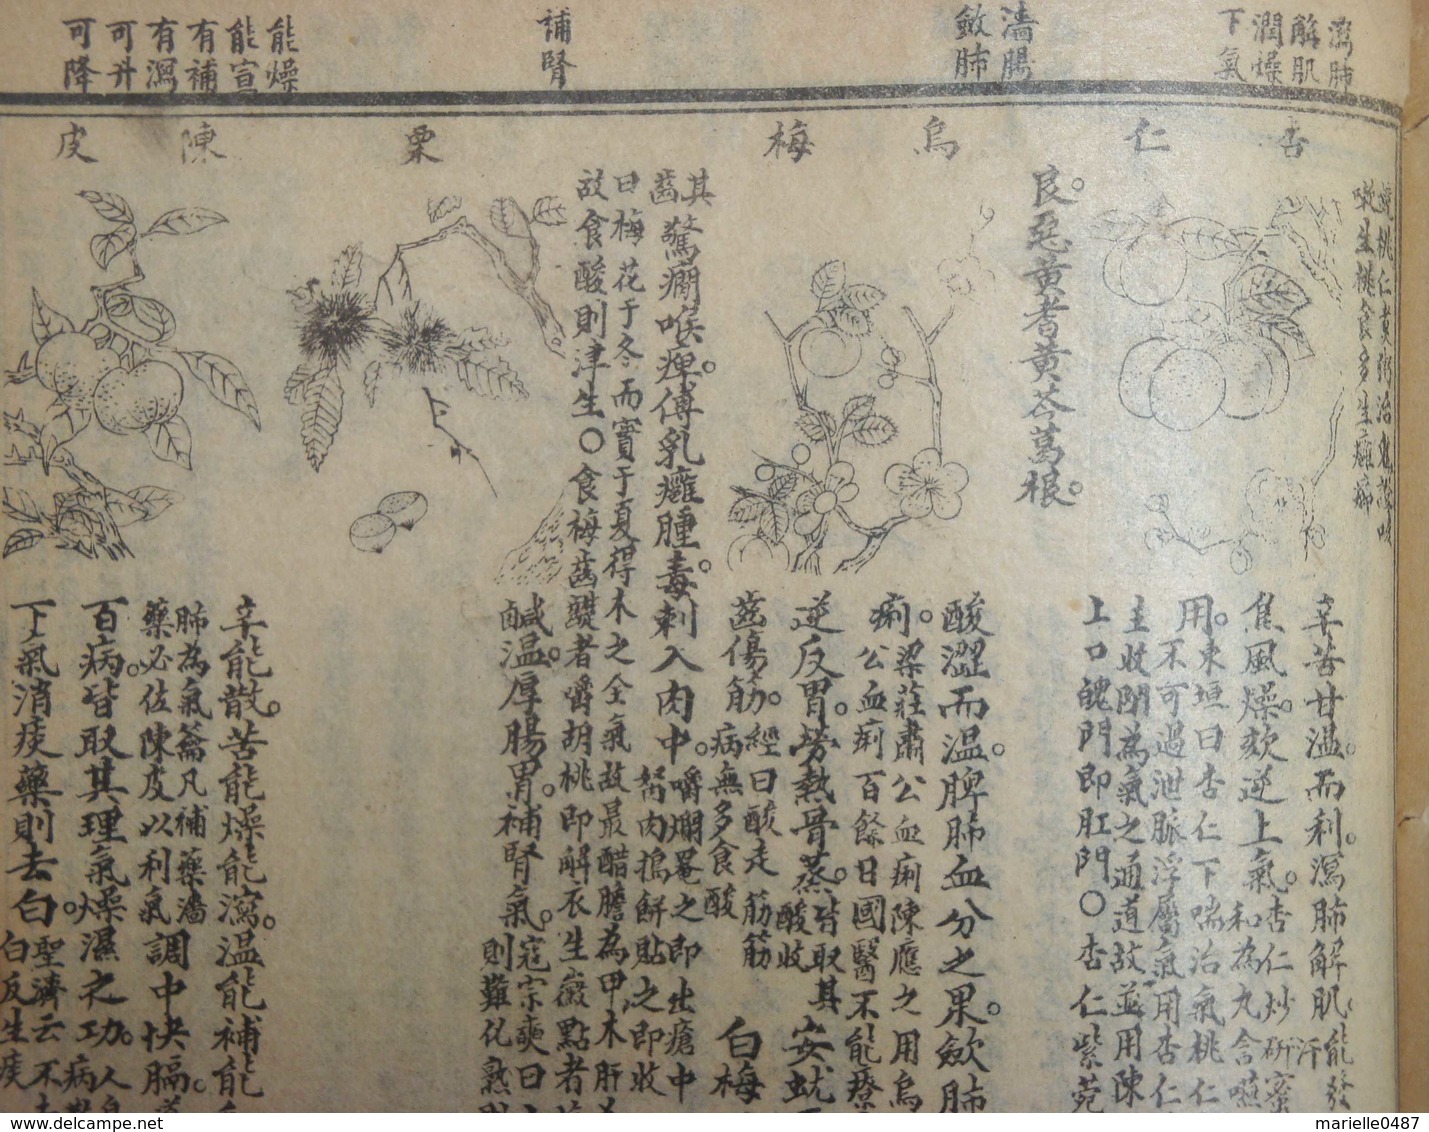 瀉肺
解肌
潤燥
下氣
濇腸
斂肺
補腎
能燥
能宣
有補
有瀉
可升
可降
杏仁
烏梅
栗
陳皮
嗽生桃食多生癰癤
辛苦甘溫而利。瀉肺解肌。能發汗
焦風燥。欬逆上氣。杏仁炒研蜜
和為丸含嚥
用。東垣曰杏仁下喘治氣桃仁
不可過泄脈浮屬氣用杏仁
主收閉為氣之通道故並用陳
上口魄門即肛門〇杏仁紫菀
良。惡黃耆黃芩葛根。
酸澀而溫。脾肺血分之果。斂肺
痢。梁莊肅公血痢陳應之用烏
公血痢百餘日國醫不能療
逆反胃。勞熱骨蒸。皆取其酸收
安蚘
齒傷筋。經曰酸走筋筋
病無多食酸
白梅
驚癇喉痺。傅乳癰腫毒。刺入肉中。嚼爛罨之即出瘡中
弩肉搗餅貼之即收
其
齒
曰梅花于冬而實于夏得木之全氣故最酸膽為甲木肝
故食酸則津生〇食梅齒齼者嚼胡桃即解衣生黴點者
鹹溫。厚腸胃。補腎氣。寇宗奭曰
則難化熟則
辛能散。苦能燥能瀉。溫能補能
肺為氣籥凡補藥濇
藥必佐陳皮以利氣
調中快膈。
百病。皆取其理氣燥濕之功。人身
病
下氣消痰藥則去白。聖濟云不
白反生痰
marielle0487